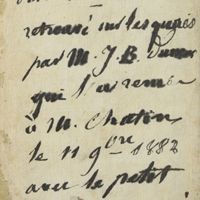 retrouvé sur les quais
par M. J. B. Dumas
qui l'a remis
à M. Chatin
le 11 9bre 1882
avec le petit